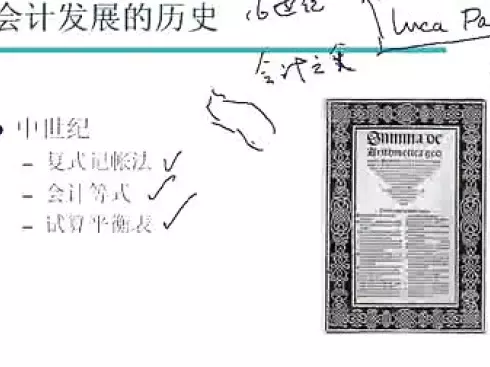 会计发展的历史
16世纪
Luca Pa
会计之
中世纪
– 复式记帐法
– 会计等式
– 试算平衡表
Summa de
Arithmetica geo